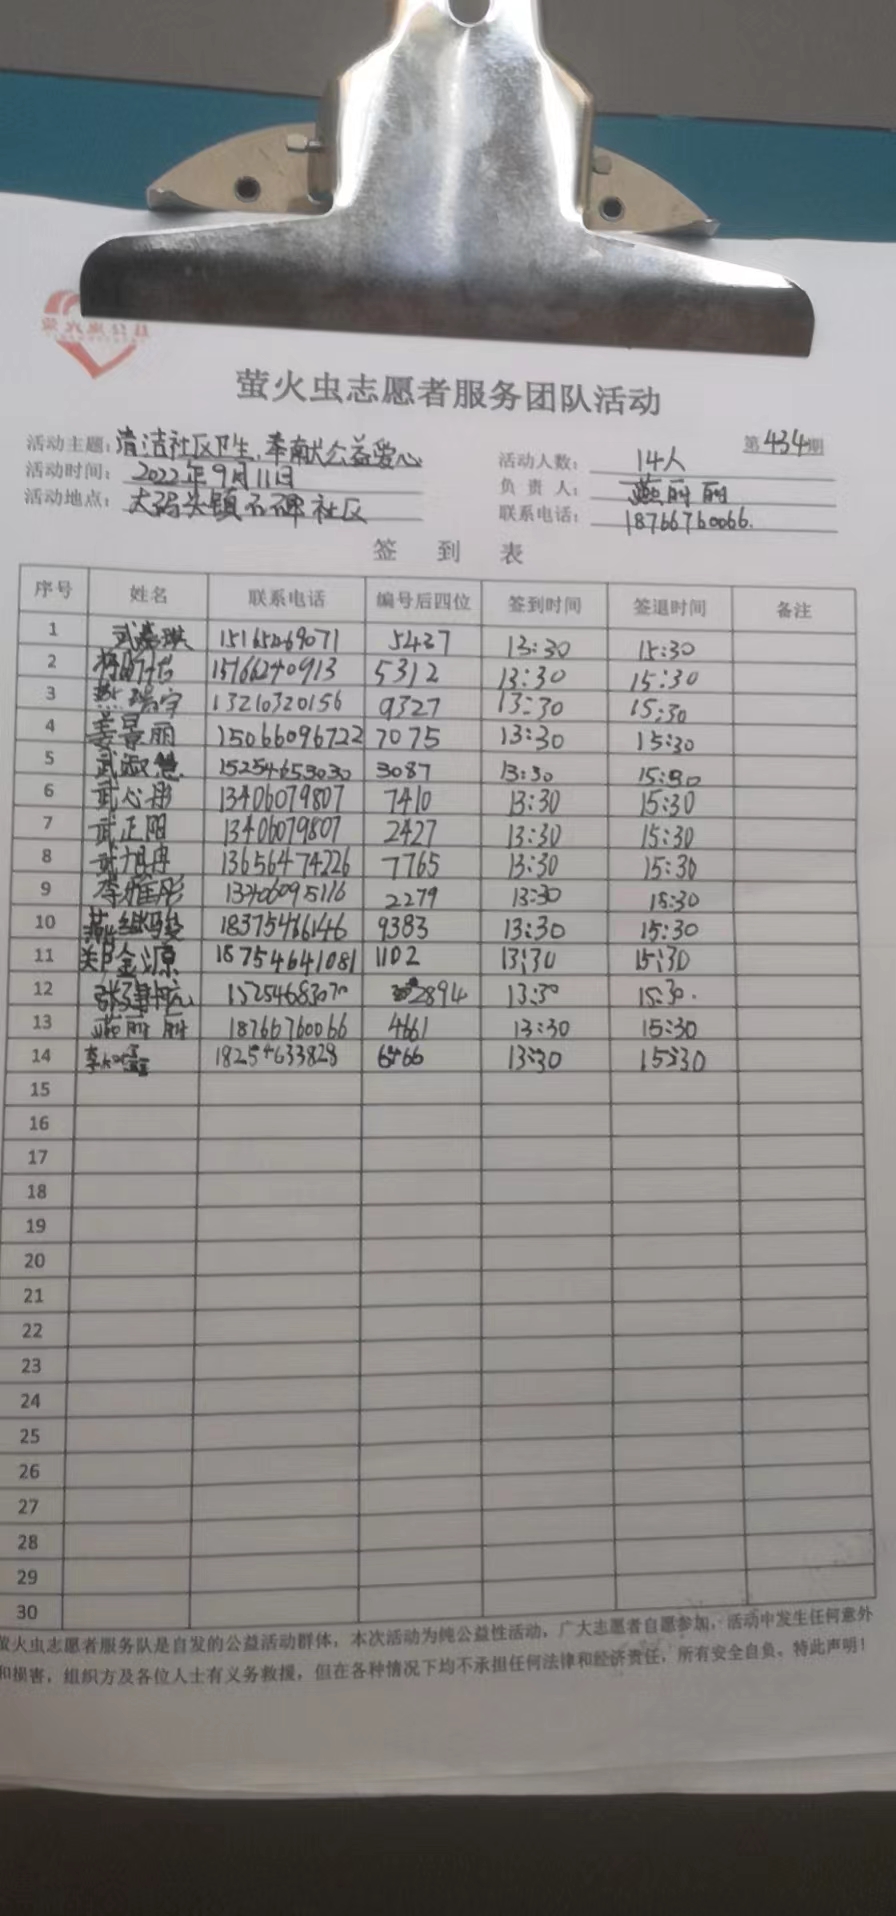 萤火虫志愿者服务团队活动
第434期
活动主题：清洁社区卫生，奉献公益爱心 活动人数：14人
活动时间：2022年9月11日 负责人：燕丽丽
活动地点：大码头镇石碑社区 联系电话：18766760066.
签到表
序号 姓名 联系电话 编号后四位 签到时间 签退时间 备注
1 5437 13:30 15:30
2 15166240913 5312 13:30 15:30
3 13210320156 9327 13:30 15:30
4 姜景丽 15066096722 7075 13:30 15:30
5 武淑慧 15254653030 3087 13:30 15:30
6 武心彤 13406079807 7410 13:30 15:30
7 武正阳 13406079807 2427 13:30 15:30
8 武旭冉 13656474226 7765 13:30 15:30
9 李雅彤 2279 13:30 15:30
10 9383 13:30 15:30
11 郑金源 18754641081 1102 13:30 15:30
12 15254683070 2894 13:30 15:30.
13 燕丽丽 18766760066 4661 13:30 15:30
14 18254633828 6466 13:30 15:30
15
16
17
18
19
20
21
22
23
24
25
26
27
28
29
30
萤火虫志愿者服务队是自发的公益活动群体，本次活动为纯公益性活动，广大志愿者自愿参加，活动中发生任何意外
和损害，组织方及各位人士有义务救援，但在各种情况下均不承担任何法律和经济责任，所有安全自负。特此声明！